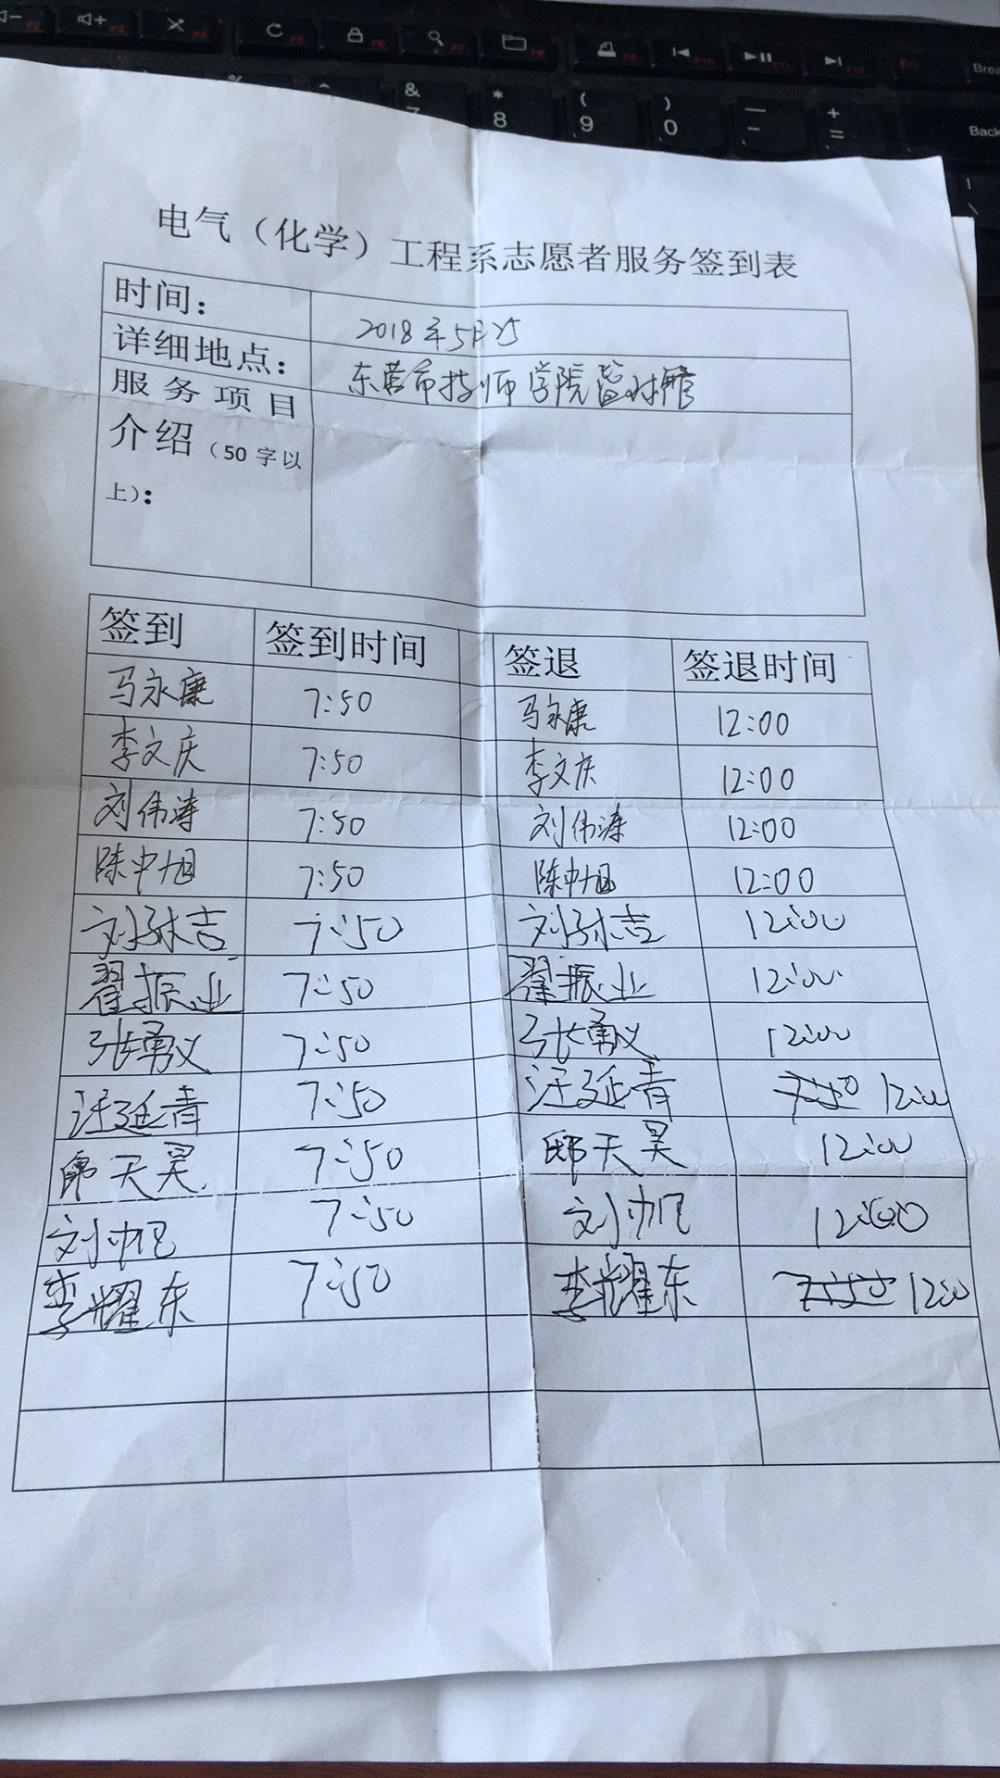 F2 F3 F4 F5 F6 F7 F8 F9 F10 F11 F12 Fn Brea
% ^ & 7 * 8 ( 9 ) 0 — - + = Back
电气（化学）工程系志愿者服务签到表
时间： 2018年5月25
详细地点： 东营市技师学院
服务项目
介绍（50 字以
上）：
签到 签到时间 签退 签退时间
马永康 7:50 马永康 12:00
李文庆 7:50 李文庆 12:00
刘伟涛 7:50 刘伟涛 12:00
陈中旭 7:50 陈中旭 12:00
刘林吉 7:50 刘林吉 12:00
翟振业 7:50 翟振业 12:00
张勇义 7:50 张勇义 12:00
汪延青 7:50 汪延青 7:50 12:00
天昊 7:50 天昊 12:00
刘帅 7:50 刘帅 12:00
李耀东 7:50 李耀东 7:50 12:00